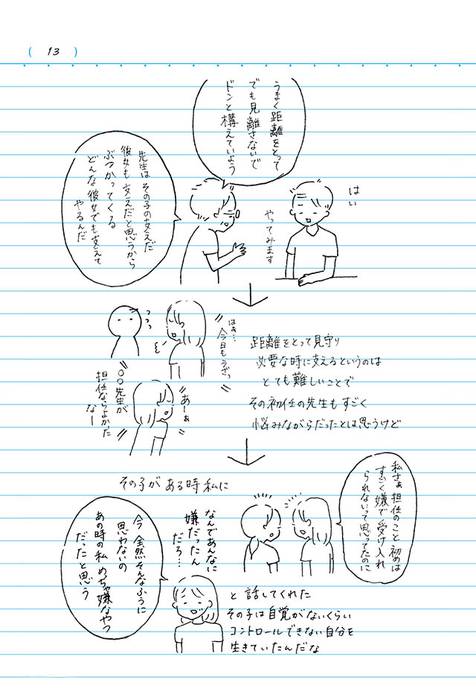 ( 13 )
うまく距離をとって
でも見離さないで
ドンと構えていよう
先生はその子の支えだ
彼女も支えだと思うから
ぶつかってくる
どんな彼女でも支えて
やるんだ
はい
やってみます
はぁ…
今日もうざっ
○○先生が
担任ならよかった
なー
あーぁ
距離をとって見守り
必要な時に支えるというのは
とても難しいことで
その初任の先生もすごく
悩みながらだったとは思うけど
その子がある時私に
私さぁ担任のこと初めは
すごく嫌で受け入れ
られないって思ったのに
なんであんなに
嫌だったん
だろ…
今全然そんなふうに
思わないの
あの時の私めちゃ嫌なやつ
だったと思う
と話してくれた
その子は自覚がないくらい
コントロールできない自分を
生きていたんだな